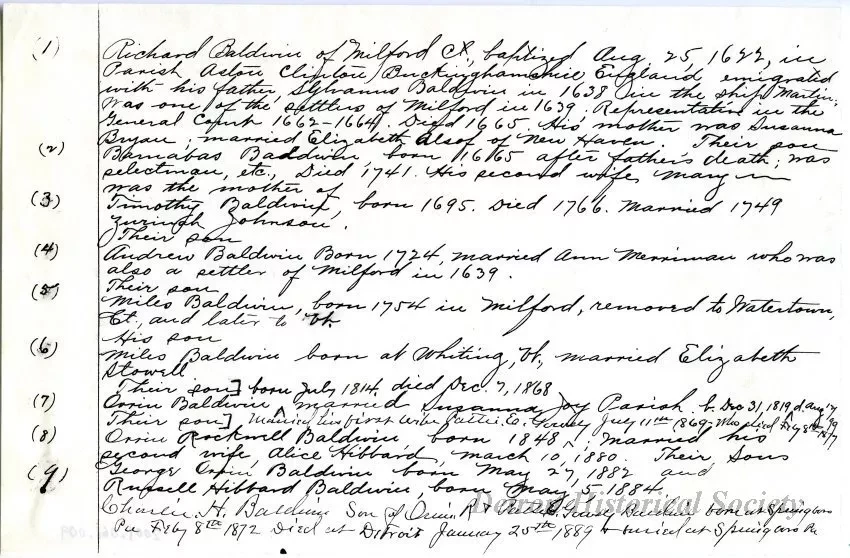 (1) Richard Baldwin of Milford Ct., baptized Aug 25, 1622, in
Parish Aston Clinton, Buckinghamshire England, emigrated
with his father, Sylvanus Baldwin in 1638 in the ship Martin.
Was one of the settlers of Milford in 1639. Representative in the
General Court 1662-1664. Died 1665. His mother was Susanna
(2) Bryan; married Elizabeth Alsop of New Haven. Their son
Barnabas Baldwin, born 1665 after father's death; was
selectman, etc., Died 1741. His second wife, Mary
was the mother of
(3) Timothy Baldwin, born 1695. Died 1766. Married 1749
Zuriah Johnson.
Their son
(4) Andrew Baldwin Born 1724, married Ann Merriman who was
also a settler of Milford in 1639.
(5) Their son
Miles Baldwin, born 1754 in Milford, removed to Watertown,
Ct., and later to Vt.
His son
(6) Miles Baldwin born at Whiting, Vt., married Elizabeth
Stowell
Their son] born July 1814. died Dec. 7, 1868
(7) Orrin Baldwin married Susanna Joy Parish b. Dec 31, 1819, d. Aug 17
Their son] Married his first wife July 11th 1869 who died Feby 8th
(8) Orrin Rockwell Baldwin born 1848. Married his
second wife Alice Hibbard, March 10, 1880. Their Sons
(9) George Orrin Baldwin born May 27, 1882 and
Russell Hibbard Baldwin, born May 5, 1884.
Charlie H. Baldwin Son of Orrin R Baldwin born at Springboro
Pa Feby 8th 1872 Died at Detroit January 25th 1889 & buried at Springboro Pa
Detroit Historical Society